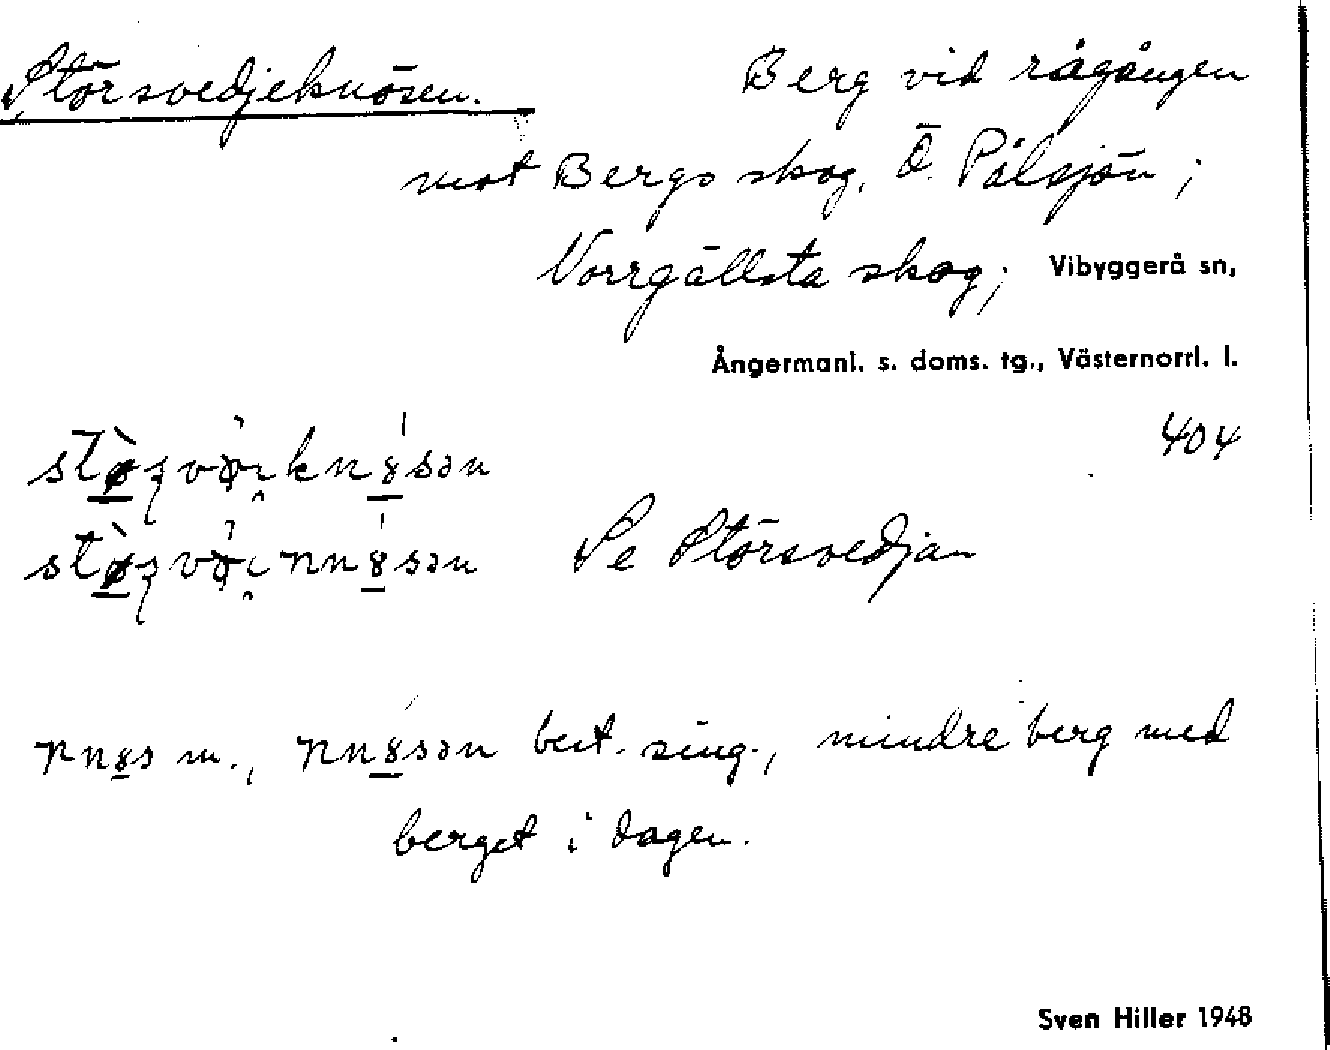 Störsvedjeknösen. Berg vid rågången
mot Bergs skog, Ö. Pålsjön;
Norrgällsta skog; Vibyggerå sn,
Ångermanl. s. doms. tg., Västernorrl. l.
404
Se Störsvedjan
m., best. sing., mindre berg med
berget i dagen.
Sven Hiller 1948